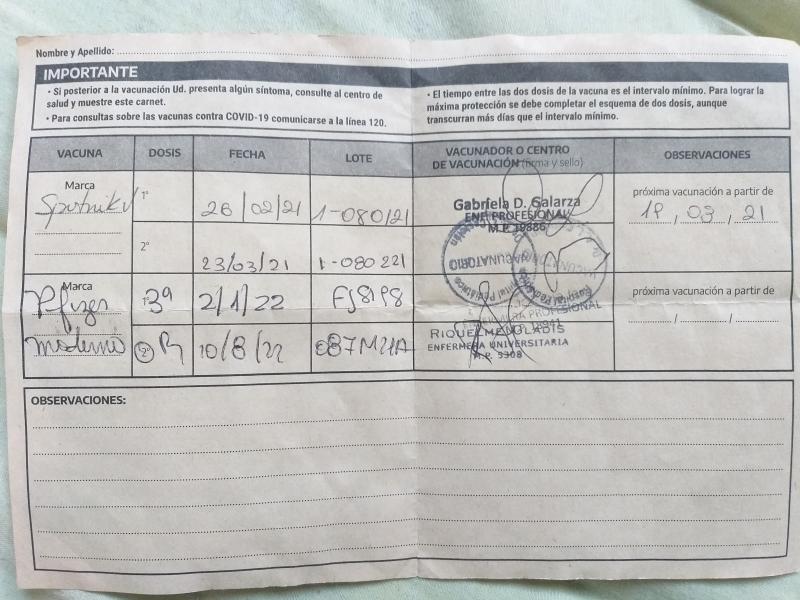 Nombre y Apellido:
IMPORTANTE
• Si posterior a la vacunación Ud. presenta algún síntoma, consulte al centro de
salud y muestre este carnet.
• Para consultas sobre las vacunas contra COVID-19 comunicarse a la línea 120.
• El tiempo entre las dos dosis de la vacuna es el intervalo mínimo. Para lograr la
máxima protección se debe completar el esquema de dos dosis, aunque
transcurran más días que el intervalo mínimo.
VACUNA DOSIS FECHA LOTE VACUNADOR O CENTRO DE VACUNACIÓN (firma y sello) OBSERVACIONES
Marca
Sputnik V 1º 26/02/21 1-080121
Gabriela D. Galarza
ENF. PROFESIONAL
M.P. 19886
próxima vacunación a partir de
19, 03, 21
2º 23/03/21 1-080221
VACUNATORIO
Marca
Pfizer 1º 3ª 2/1/22 FJ8198
PROFESIONAL
próxima vacunación a partir de
/ /
moderna 2º R 10/8/22 087M21A
RIQUELME GLADIS
ENFERMERA UNIVERSITARIA
M.P. 5308
OBSERVACIONES: